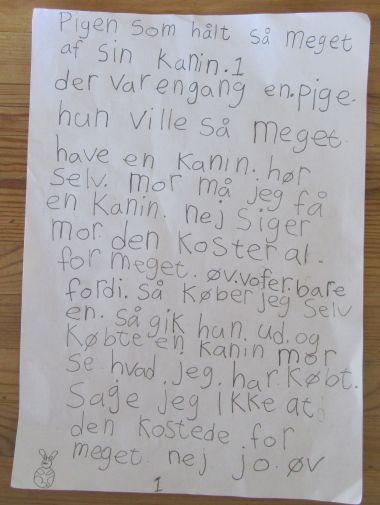 Pigen som hålt så meget
af sin kanin. 1
der var engang en. pige.
hun ville så meget.
have en kanin. hør
selv. mor må jeg få
en kanin. nej siger
mor. den koster al.
for meget. øv. vofer. bare
fordi. så køber jeg selv
en. så gik hun. ud. og
købte en kanin mor
se. hvad. jeg. har. købt.
Sage jeg ikke at.
den kostede. for
meget. nej jo. øv
1